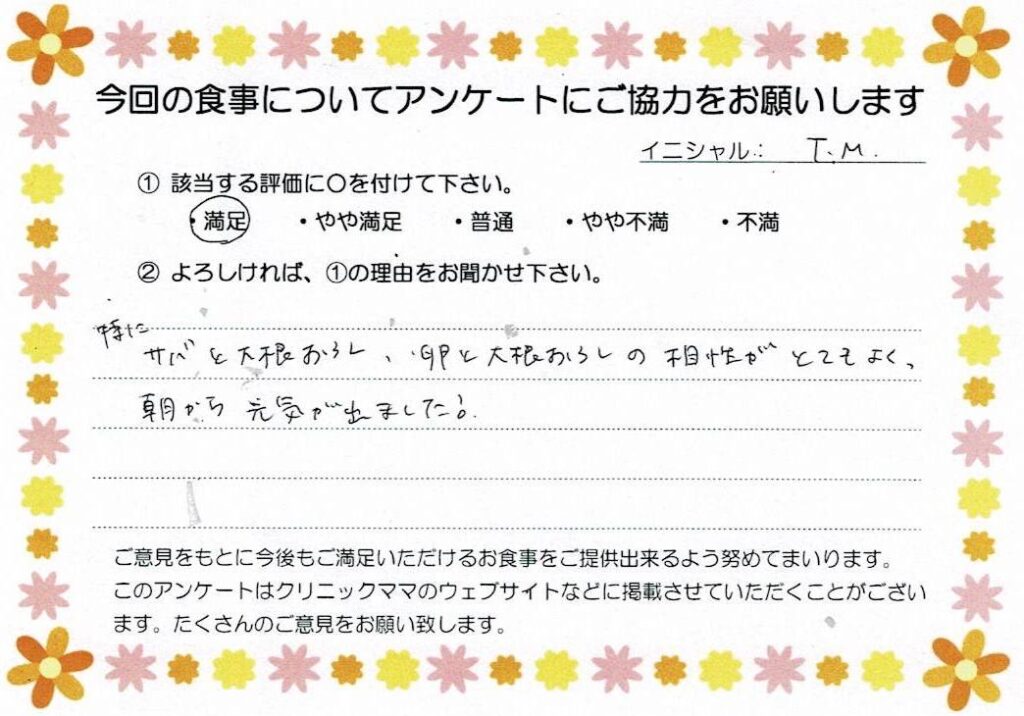 今回の食事についてアンケートにご協力をお願いします
イニシャル： T.M.
① 該当する評価に〇を付けて下さい。
・満足 ・やや満足 ・普通 ・やや不満 ・不満
② よろしければ、①の理由をお聞かせ下さい。
特に
サバと大根おろし、卵と大根おろしの相性がとてもよく、
朝から元気が出ました!。
ご意見をもとに今後もご満足いただけるお食事をご提供出来るよう努めてまいります。
このアンケートはクリニックママのウェブサイトなどに掲載させていただくことがござい
ます。たくさんのご意見をお願い致します。